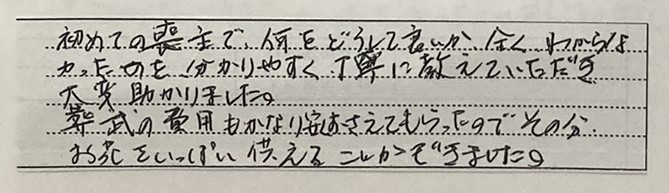 初めての喪主で、何をどうして良いか、全くわからな
かったのを分かりやすく丁寧に教えていただき
大変助かりました。
葬式の費用もかなり安くおさえてもらったのでその分、
お花をいっぱい供えることができました。